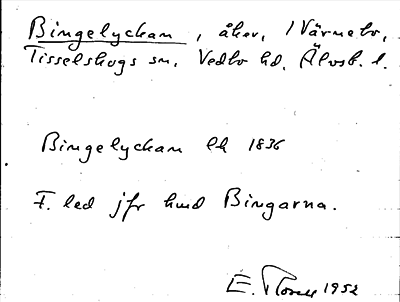 Bingelyckan, åker, 1 Värnebo,
Tisselskogs sn, Vedbo hd, Älvsb. l.
Bingelyckan lh 1836
F. led jfr hmd Bingarna.
E. 1952